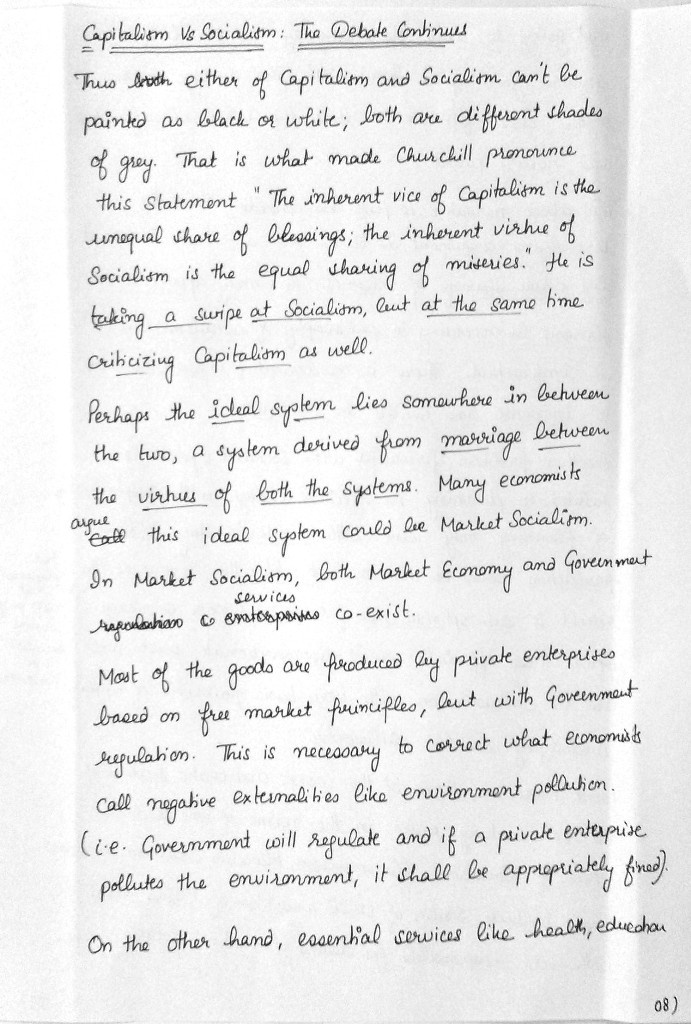 Capitalism Vs Socialism: The Debate Continues
Thus both either of Capitalism and Socialism can't be
painted as black or white; both are different shades
of grey. That is what made Churchill pronounce
this statement "The inherent vice of Capitalism is the
unequal share of blessings; the inherent virtue of
Socialism is the equal sharing of miseries." He is
taking a swipe at Socialism, but at the same time
criticizing Capitalism as well.
Perhaps the ideal system lies somewhere in between
the two, a system derived from marriage between
the virtues of both the systems. Many economists
argue
Call this ideal system could be Market Socialism.
In Market Socialism, both Market Economy and Government
services
regulation co-exist.
Most of the goods are produced by private enterprises
based on free market principles, but with Government
regulation. This is necessary to correct what economists
call negative externalities like environment pollution.
(i.e. Government will regulate and if a private enterprise
pollutes the environment, it shall be appropriately fined).
On the other hand, essential services like health, education
08)